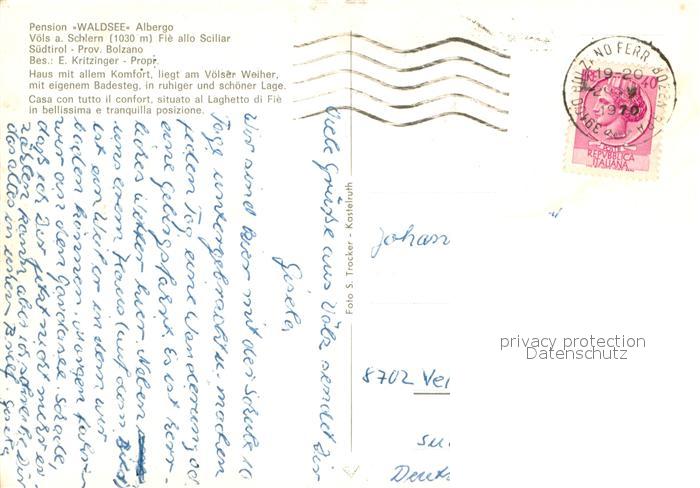 Pension »WALDSEE« Albergo
Völs a. Schlern (1030 m) Fiè allo Sciliar
Südtirol - Prov. Bolzano
Bes.: E. Kritzinger - Propr.
Haus mit allem Komfort, liegt am Völser Weiher,
mit eigenem Badesteg, in ruhiger und schöner Lage.
Casa con tutto il confort, situato al Laghetto di Fiè
in bellissima e tranquilla posizione.
Viele Grüße aus Völs sendet Dir
Gisela,
Wir sind hier mit der Schule 10
Tage untergebracht u. machen
jeden Tag eine Wanderung od.
eine Gebirgsfahrt. Es ist herr-
liches Wetter hier. Neben
unserem Haus (auf dem Bild)
ist ein Weiher in dem wir
baden können. Morgen fahren
wir an den Gardasee. Schade,
daß ich Dir jetzt nicht mehr er-
zählen kann, aber ich schreibe Dir
das alles in einem Brief. Gisela
Foto S. Trocker - Kastelruth
19-20
1970
LIRE 40
POSTE
REPVBBLICA
ITALIANA
Johan
8702 Vei
Deuts
privacy protection
Datenschutz